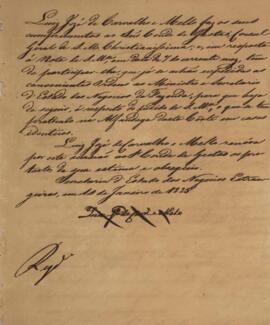 Luiz José de Carvalho e Mello faz os seus
cumprimentos ao Snr. Conde de Gestas Consul
Geral de S. M. Christianissima; e, em resposta
á Nota de S. Mce. em data de 7 do corrente mez, tem
de participar-lhe, que já se achão expedidas as
convenientes Ordens ao Ministro e Secretario
d'Estado dos Negocios da Fazenda, para que haja
de seguir, a respeito do pedido de S. Mce., o que se tem
praticado na Alfandega desta Corte em casos
identicos.
Luiz José de Carvalho e Mello renova
por esta occasião ao Sr. Conde de Gestas os pro
testos de sua estima e obsequio.
Secretaria d'Estado dos Negocios Estran
geiros, em 10 de Janeiro de 1825